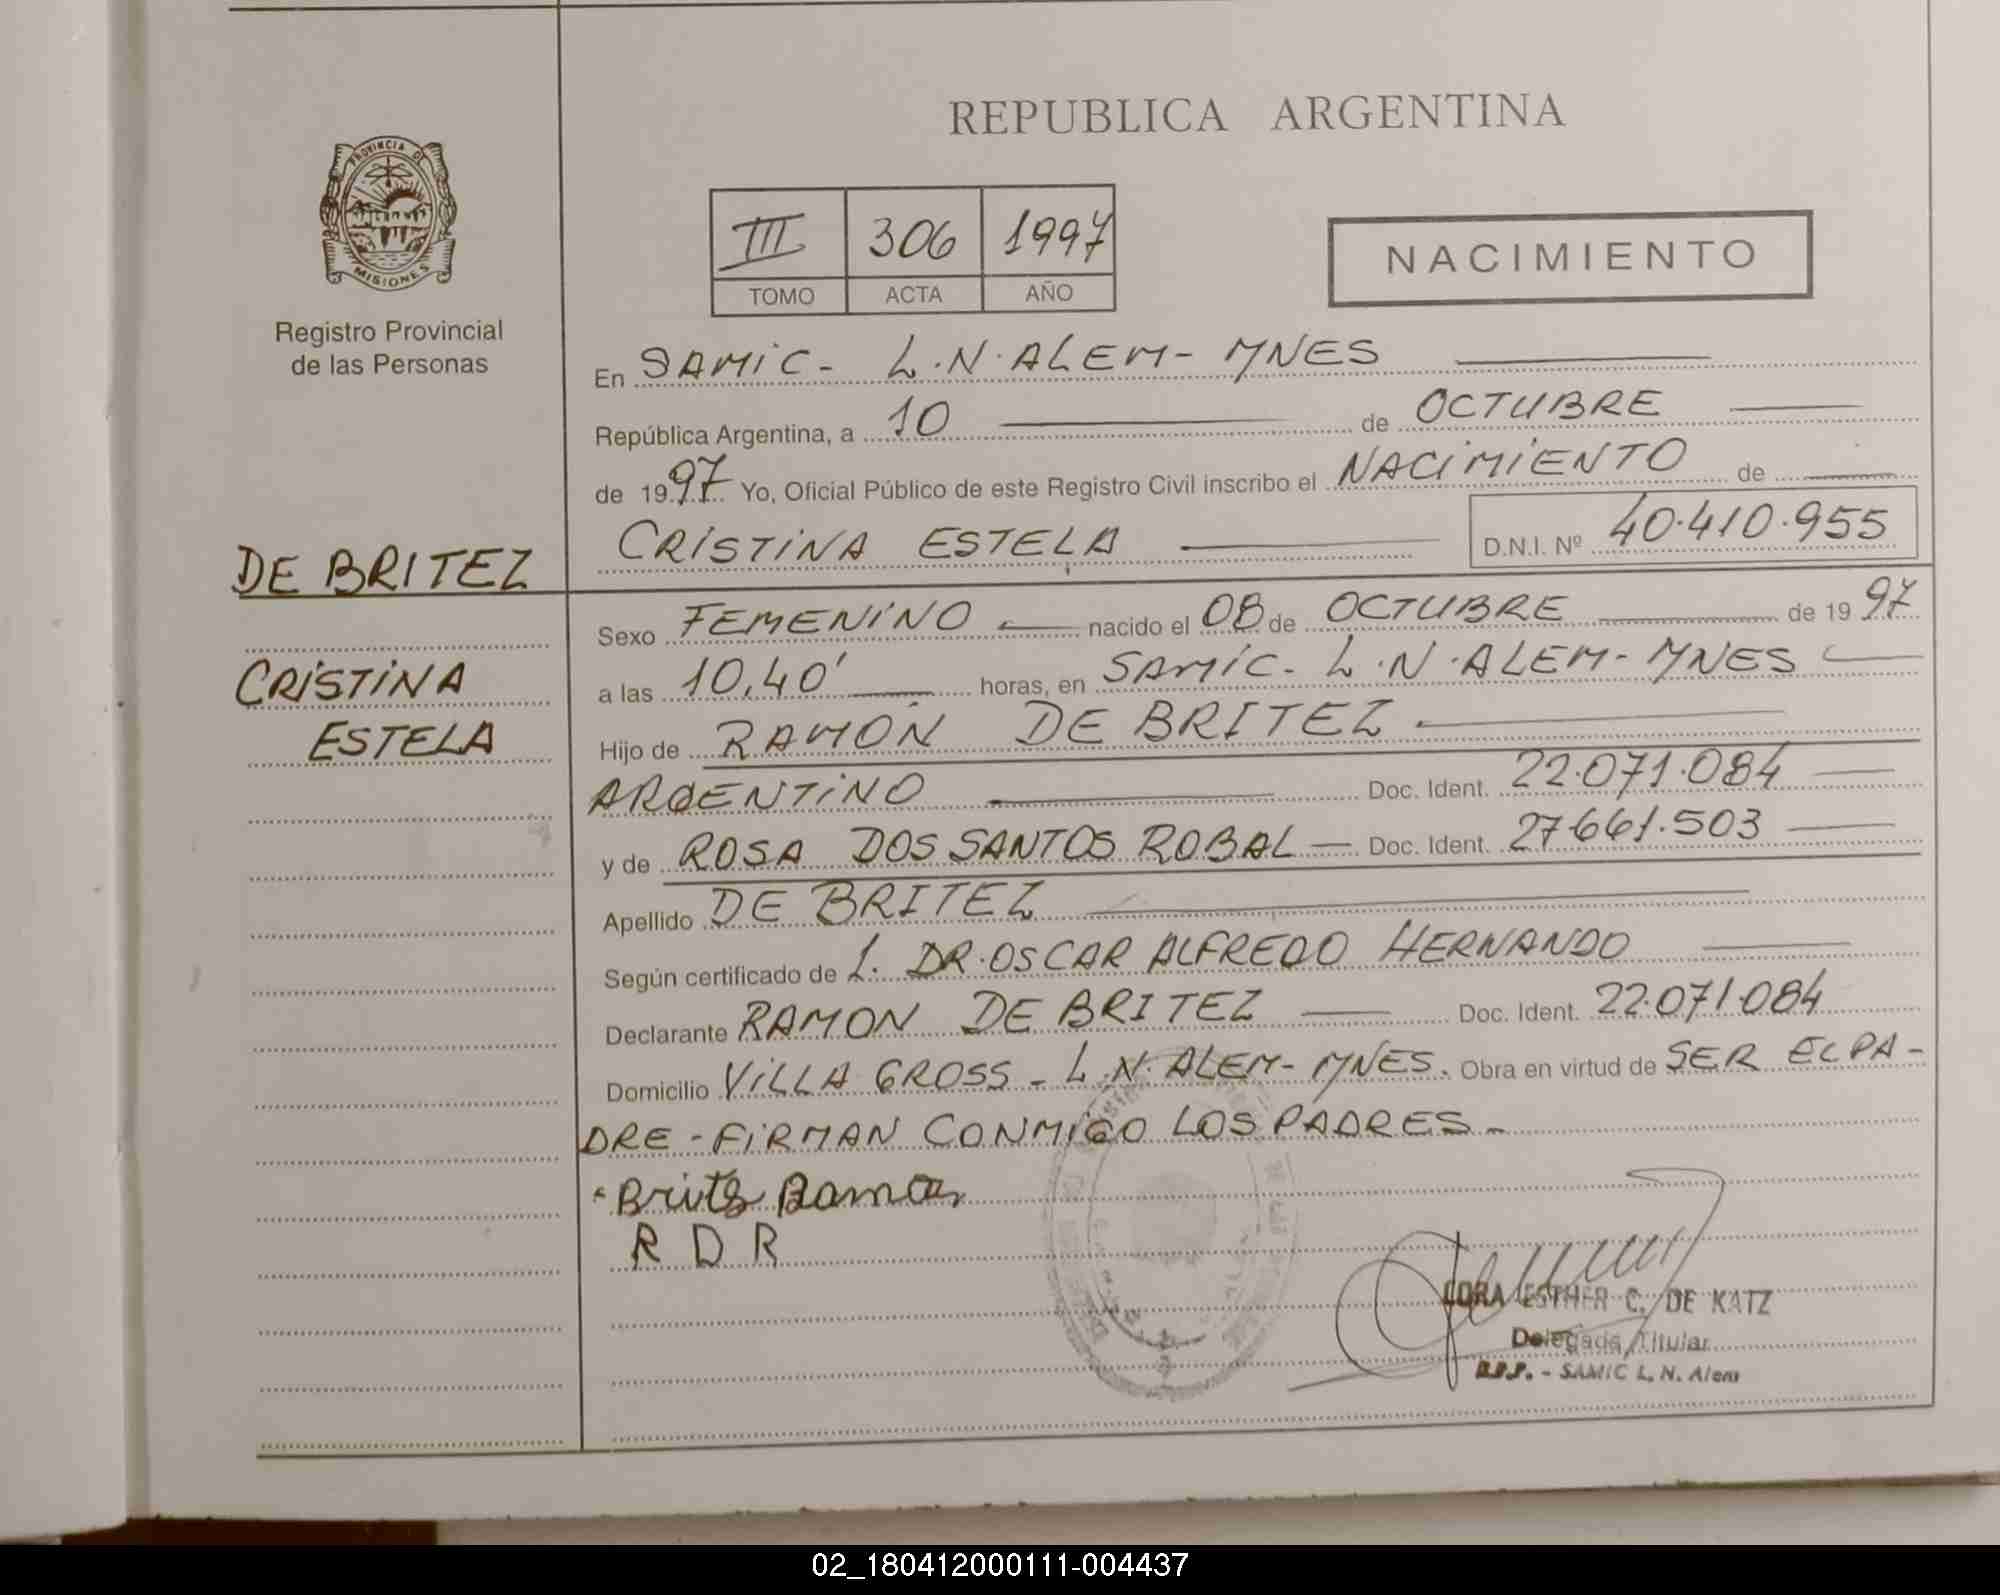 REPUBLICA ARGENTINA
PROVINCIA DE
MISIONES
Registro Provincial
de las Personas
III 306 1997
TOMO ACTA AÑO
NACIMIENTO
En SAMIC - L.N. ALEM - MNES
República Argentina, a 10 de OCTUBRE
de 1997 Yo, Oficial Público de este Registro Civil inscribo el NACIMIENTO de
CRISTINA ESTELA D.N.I. Nº 40.410.955
DE BRITEZ
CRISTINA
ESTELA
Sexo FEMENINO nacido el 08 de OCTUBRE de 1997
a las 10,40' horas, en SAMIC - L.N. ALEM - MNES
Hijo de RAMÓN DE BRITEZ
ARGENTINO Doc. Ident. 22.071.084
y de ROSA DOS SANTOS ROBAL Doc. Ident. 27.661.503
Apellido DE BRITEZ
Según certificado de L. DR. OSCAR ALFREDO HERNANDO
Declarante RAMON DE BRITEZ Doc. Ident. 22.071.084
Domicilio VILLA GROSS - L.N. ALEM - MNES. Obra en virtud de SER EL PA-
DRE - FIRMAN CONMIGO LOS PADRES -
R D R
ESTHER C. DE KATZ
Delegada Titular
SAMIC L. N. Alem
02_180412000111-004437